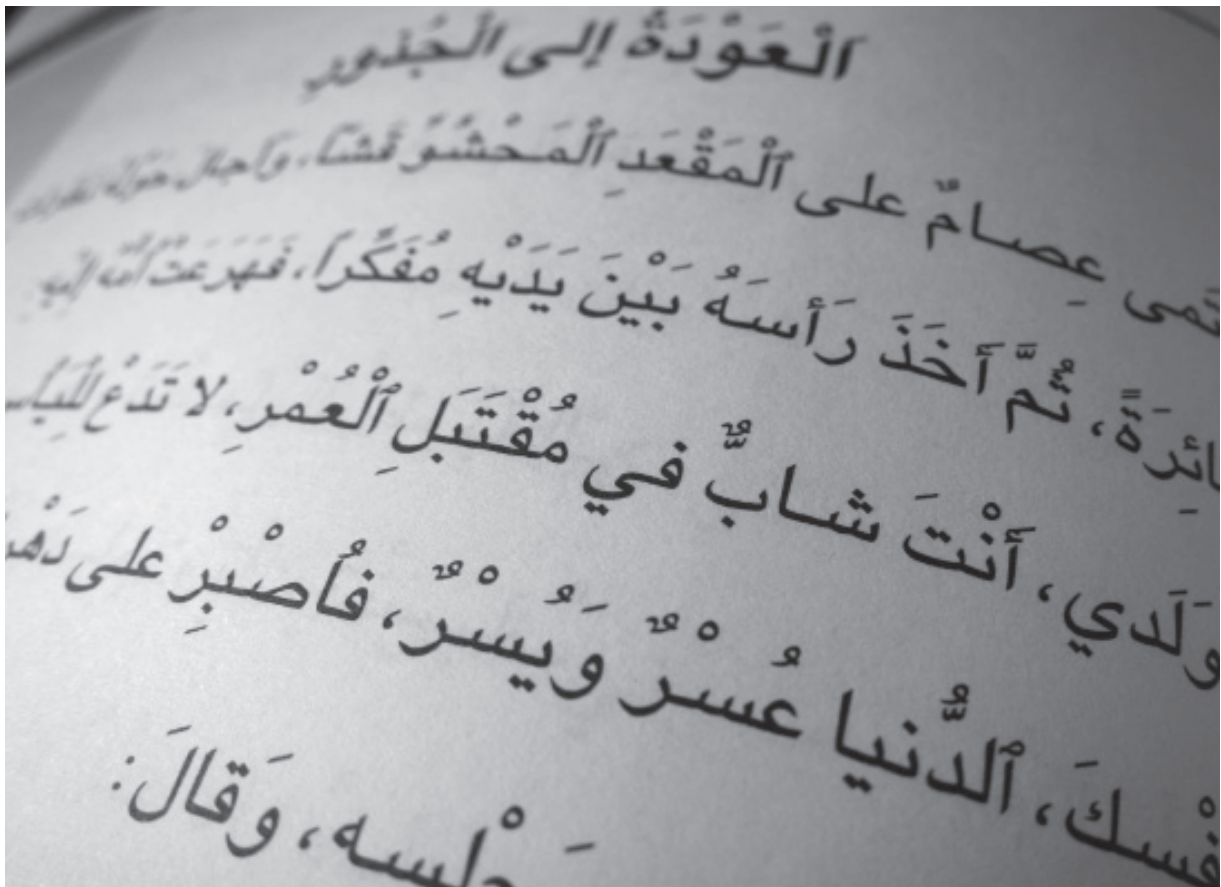 اَلْعَوْدَةُ إلى الْجُذورِ
عِصامٌ على ٱلْمَقْعَدِ ٱلْمَحْشُوِّ قَشّاً، وَأَجالَ حَوْلَهُ
ثُمَّ أَخَذَ رَأْسَهُ بَيْنَ يَدَيْهِ مُفَكِّراً، فَهَرَعَتْ أُمُّهُ إلَيْهِ
وَلَدي، أَنْتَ شابٌّ في مُقْتَبَلِ ٱلْعُمْرِ، لا تَدَعْ لِلْيَأْسِ
ٱلدُّنيا عُسْرٌ وَيُسْرٌ، فَٱصْبِرْ على
وَقالَ: